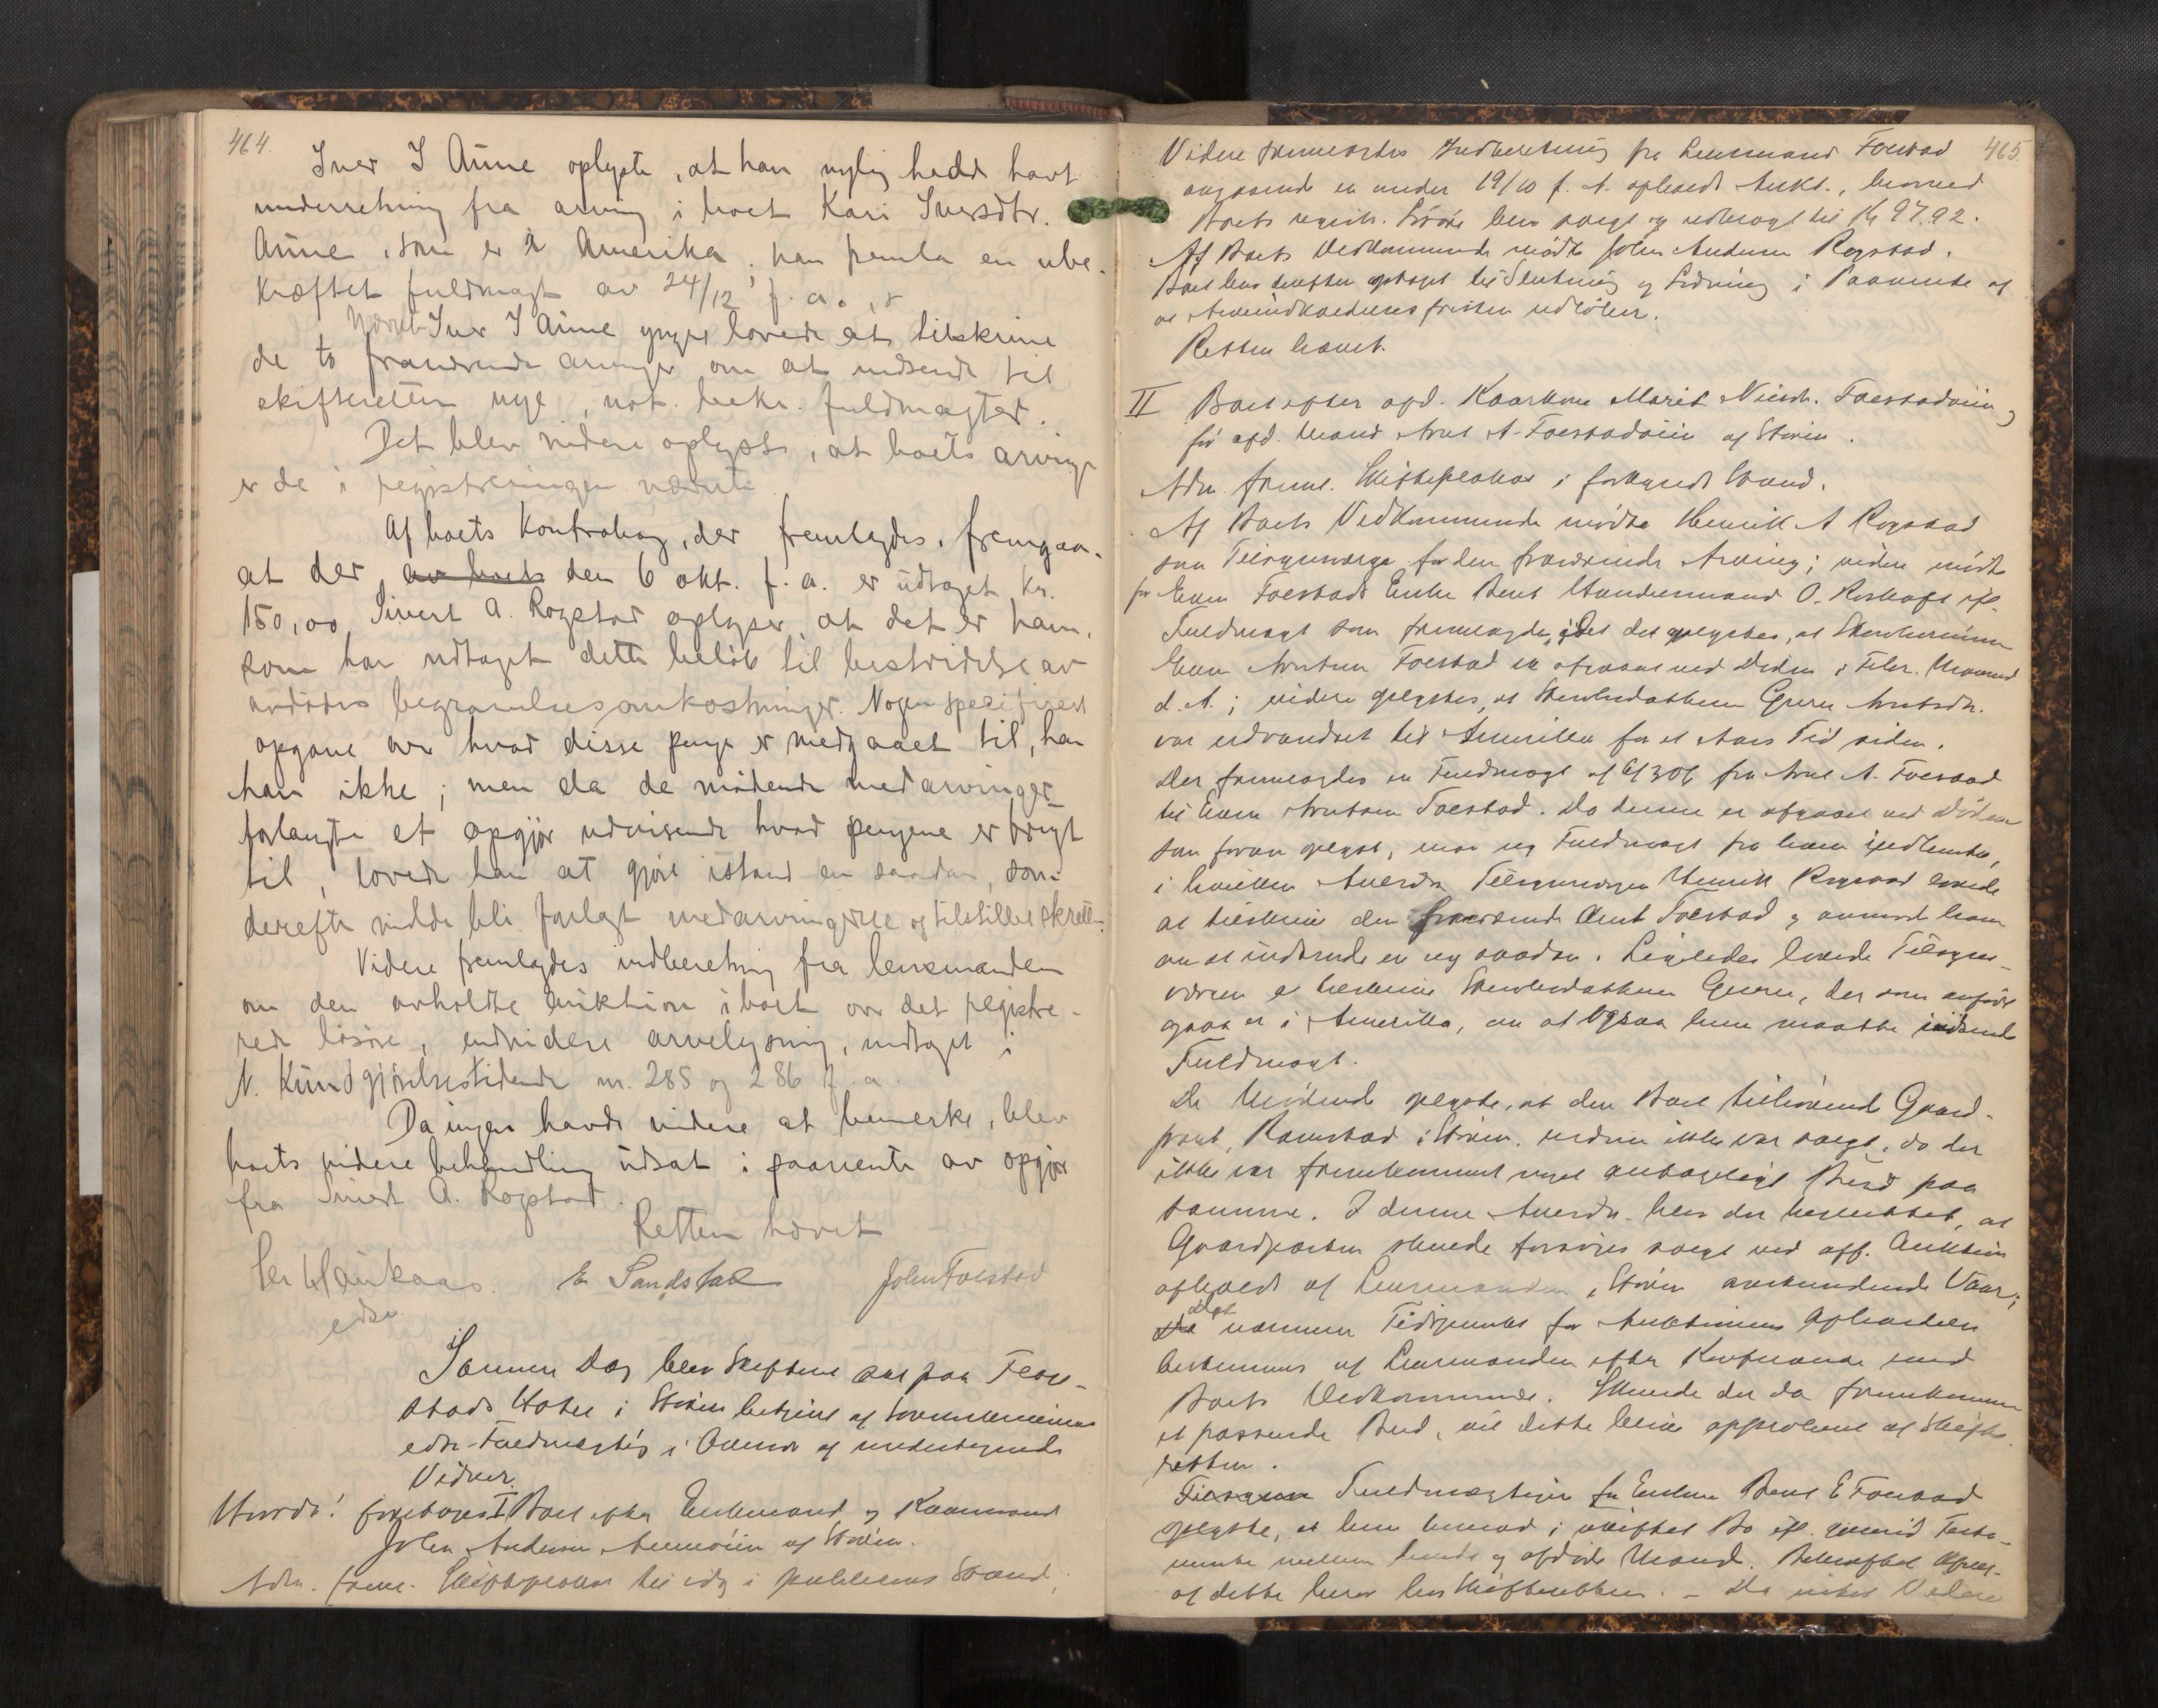 464.
Iver I Aune oplyste, at han nylig hadde havt
underretning fra arving i boet Kari Iversdtr.
Aune, som er i Amerika. han fremla en ube-
kræftet fuldmagt av 24/12 f. a.
Iver I Aune lovede at tilskrive
de to fraværende arvinger om at indsende til
skifteretten nye, not. bekr. fuldmagter.
Det blev videre oplyst, at boets arvinger
er de i registreringen nævnte.
Af boets Kontrabog, der fremlagdes, fremgaar
at der av boets den 6 okt. f. a. er udtaget kr.
150,00. Sivert A. Rogstad oplyser, at det er ham,
som har udtaget dette beløb til bestridelse av
avdødes begravelsesomkostninger. Nogen specificert
opgave over hvad disse penge er medgaaet til, har
han ikke; men da de mødende medarvinger
forlangte et opgjør udvisende hvad pengene er brugt
til, lovede han at gjøre istand en saadan, som
derefter vilde bli forlagt medarvingerne og tilstillet skretten.
Videre fremlagdes indberetning fra lensmanden
om den avholdte auktion i boet over det registre-
rede løsøre, endvidere arvelysning, indtaget i
N. Kundgjørelsestidende nr. 285 og 286 f. a.
Da ingen havde videre at bemerke, blev
boets videre behandling udsat i paavente av opgjør
fra Sivert A. Rogstad.
Retten hævet
E Sandstad John Foestad
edsv.
Samme Dag blev Skifteret sat paa
stads Hotel i Støren betjent af Sorenskriverens
edsv. Fuldmægtig i Overvær af undertegnede
Vidner.
Hvorda! foretoges I Boet efter Enkemand og Kaarmand
John Andersen Aunøien af Støren.
Adm. freml. Skifteproklama til idag i publiceret Stand;
465.
Videre fremlagdes Indberetning fra Lensmand Foestad
angaaende en under 19/10 f. A. afholdt Aukt., hvorved
Boets registr. Løsøre blev solgt og udbragt til Kr 97.92.
Af Boets Vedkommende mødte John Andersen Rogstad.
Boet blev derefter optaget til Slutning og Lodning i Paavente af
at Arveindkaldelsesfristen udløber.
Retten hævet.
II Boet efter afd. Kaarkone Marit Nilsdr. Foestadøien og
før afd. Mand Arnt A. Foestadøien af Støren.
Adm. freml. Skifteproklama i forkyndt Stand.
Af Boets Vedkommende mødte Henrik A Rogstad
som Tilsynsværge for den fraværende Arving; videre mødte
for Even Foestads Enke Beret Handelsmand O. Korkaft ifl.
Fuldmagt som fremlagdes, idet det oplystes, at
Even Arntsen Foestad er afgaaet ved Døden i Febr. Maaned
d. A.; videre oplystes, at Guru Arntsdr.
var udvandret til Amerika for et Aars Tid siden.
Der fremlagdes en Fuldmagt af fra Arnt A. Foestad
til Even Arntsen Foestad. Da denne er afgaaet ved Døden
som foran oplyst, maa ny Fuldmagt fra ham indhentes,
i hvilken Anledn. Tilsynsværgen Henrik Rogstad lovede
at tilskrive den fraværende Arnt Foestad og anmode ham
om at indsende en ny saadan. Ligeledes lovede Tilsyns-
værgen at tilskrive Guru, der som anført
ogsaa er i Amerika, om at ogsaa hun maatte indsende
Fuldmagt.
De Mødende oplyste, at den Boet tilhørende Gaard-
part, Ramstad i Støren, endnu ikke var solgt, da der
ikke var fremkommet noget antageligt Bud paa
samme. I denne Anledn. blev der besluttet, at
Gaardparten skulde forsøges solgt ved off. Auktion
afholdt af Lensmanden i Støren førstkommende Vaar;
Det nærmere Tidspunkt for Auktionens Afholdelse
bestemmes af Lensmanden efter Konferance med
Boets Vedkommende. Skulde der da fremkomme
et passende Bud, vil dette blive approberet af Skifte-
retten.
Tilsyns Fuldmægtigen for Enken Beret E Foestad
oplyste, at hun hensad i uskiftet Bo ifl. gjensid. Testa-
mente mellem hende og afdøde Mand. Bekræftet Afskr.
af dette beror hos Skifteretten. – Da intet Videre